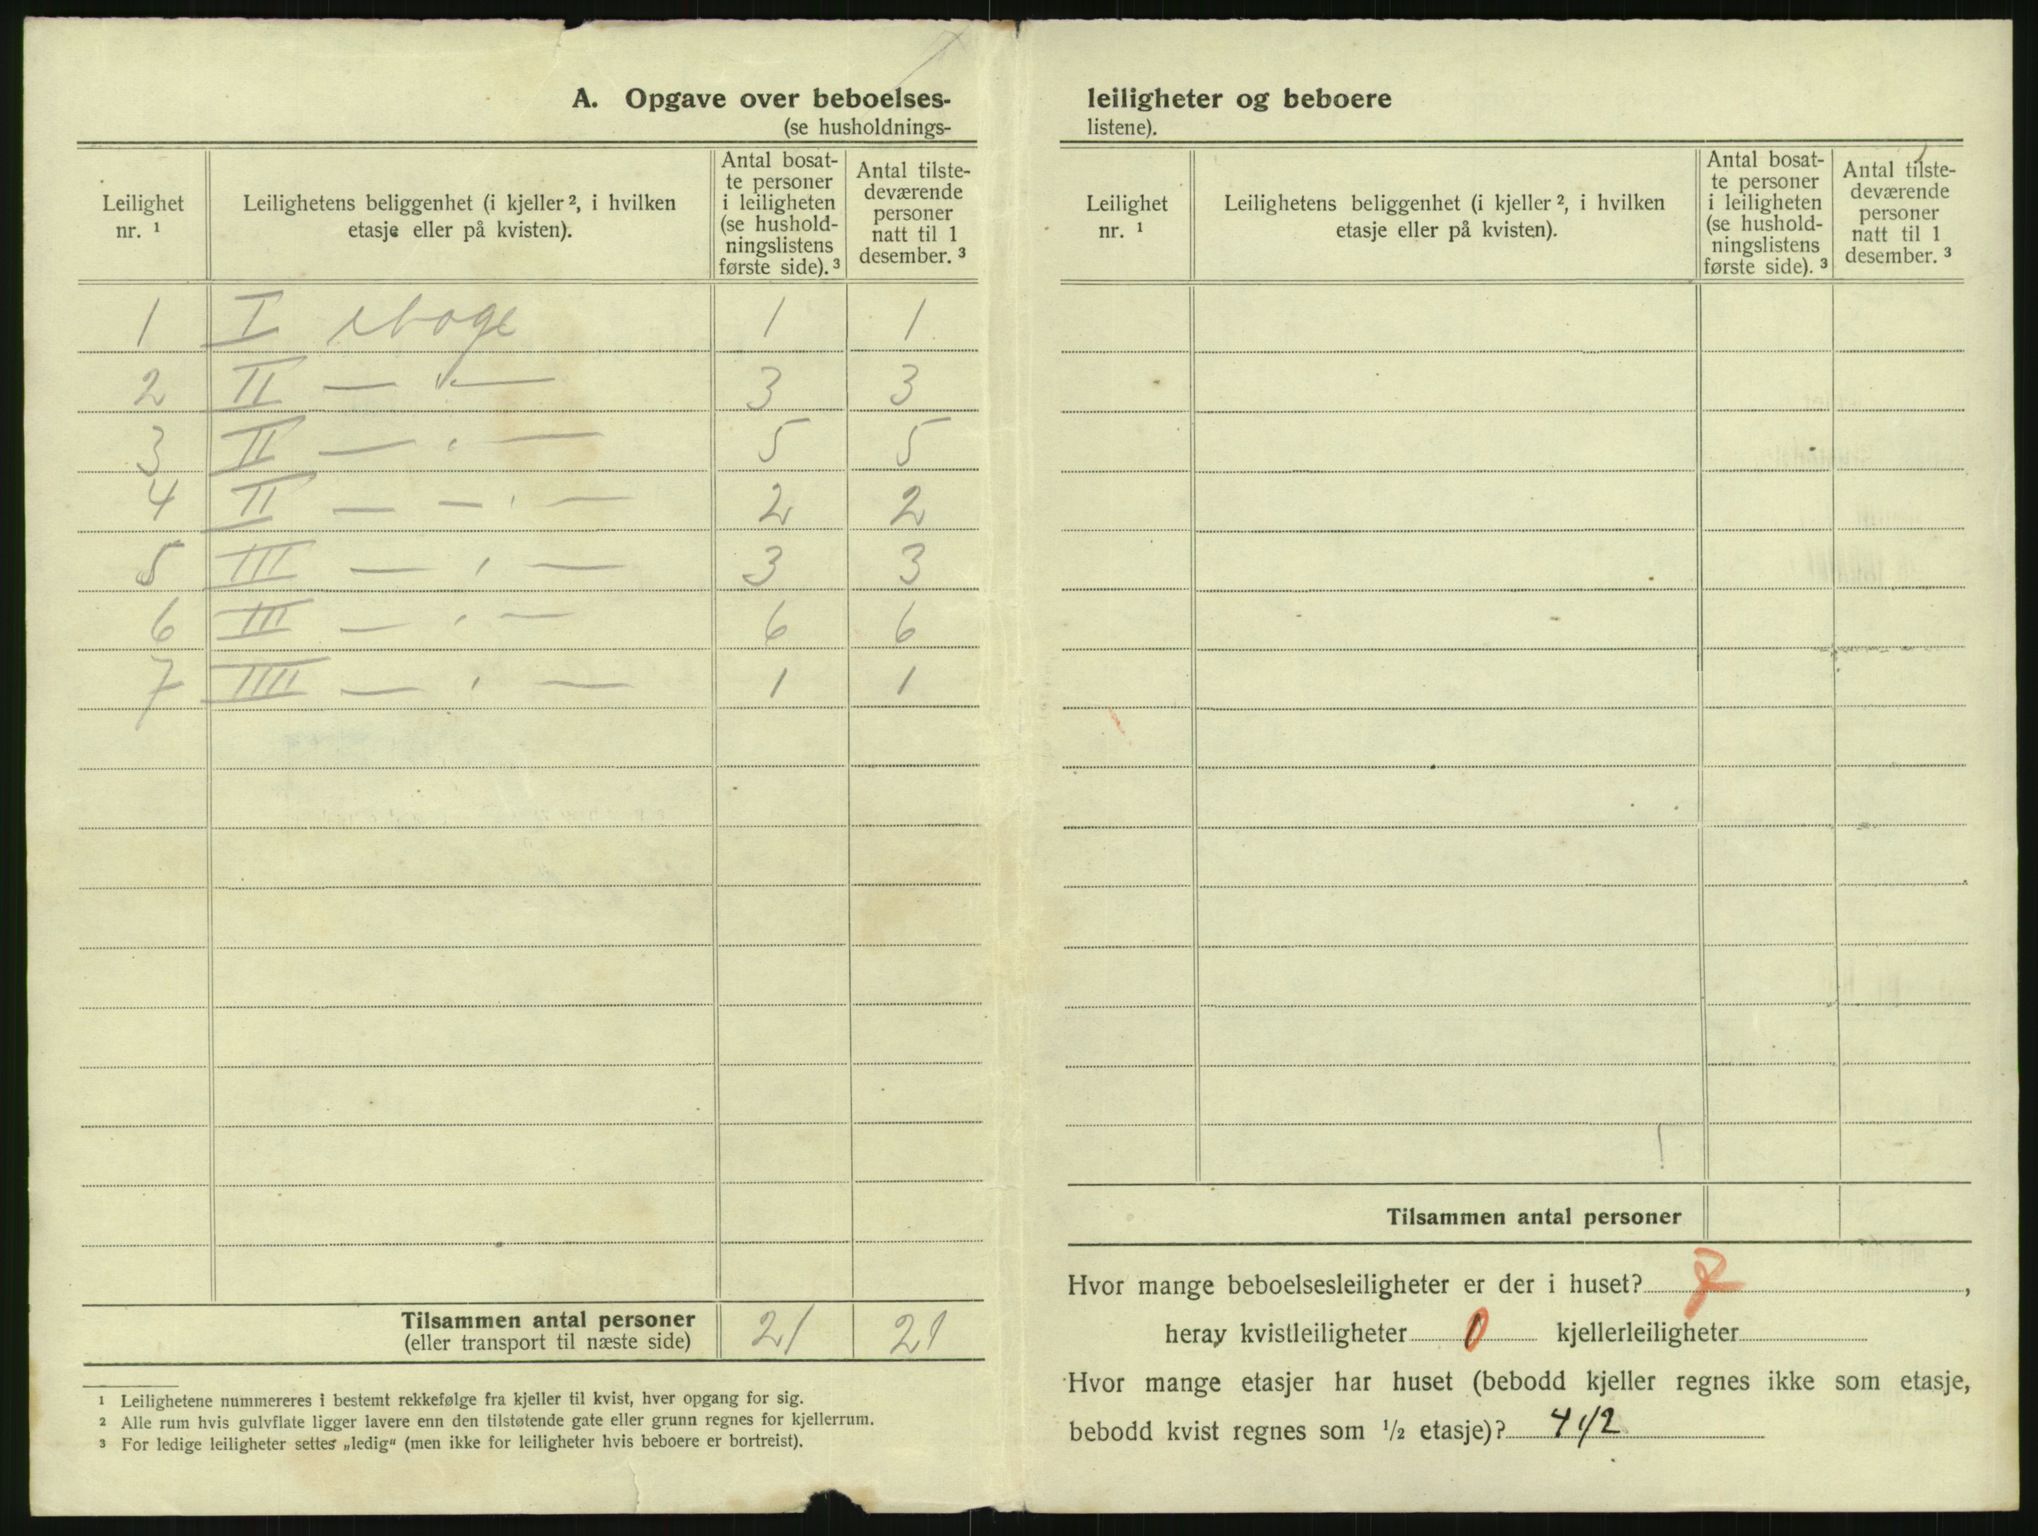 A. Opgave over beboelses-
(se husholdnings-
Leilighet nr. ¹
Leilighetens beliggenhet (i kjeller ², i hvilken etasje eller på kvisten).
Antal bosatte personer i leiligheten (se husholdningslistens første side). ³
Antal tilstedeværende personer natt til 1 desember. ³
1 I etage 1 1
2 II — " — 3 3
3 II — " — 5 5
4 II — — " — 2 2
5 III — " — 3 3
6 III — " — 6 6
7 IIII — " — 1 1
Tilsammen antal personer 21 21
(eller transport til næste side)
¹ Leilighetene nummereres i bestemt rekkefølge fra kjeller til kvist, hver opgang for sig.
² Alle rum hvis gulvflate ligger lavere enn den tilstøtende gate eller grunn regnes for kjellerrum.
³ For ledige leiligheter settes „ledig“ (men ikke for leiligheter hvis beboere er bortreist).
leiligheter og beboere
listene).
Leilighet nr. ¹
Leilighetens beliggenhet (i kjeller ², i hvilken etasje eller på kvisten).
Antal bosatte personer i leiligheten (se husholdningslistens første side). ³
Antal tilstedeværende personer natt til 1 desember. ³
Tilsammen antal personer
Hvor mange beboelsesleiligheter er der i huset? 7,
herav kvistleiligheter 0 kjellerleiligheter
Hvor mange etasjer har huset (bebodd kjeller regnes ikke som etasje,
bebodd kvist regnes som ½ etasje)? 4 1/2